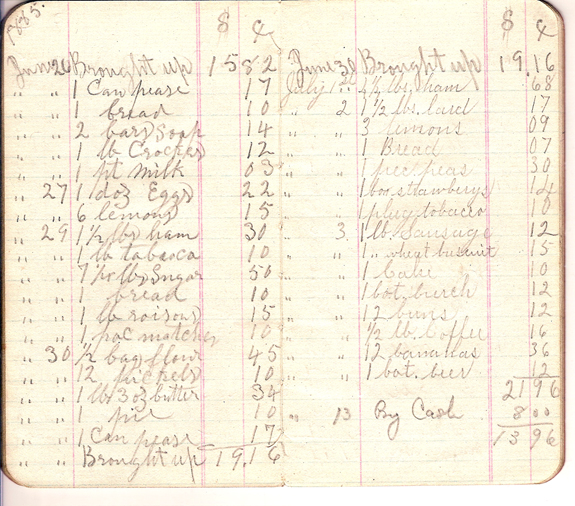 1885.
$ ¢
June 26 Brought up 15 82
" " 1 Can pease 17
" " 1 bread 10
" " 2 bars Soap 14
" " 1 lb Crackers 12
" " 1 pt Milk 03
" 27 1 doz Eggs 22
" " 6 lemons 15
" 29 1½ lbs ham 30
" " 1 lb tobacco 10
" " 7 lbs Sugar 50
" " 1 bread 10
" " 1 lb raisons 15
" " 1 pac matches 10
" 30 ½ bag flour 45
" " 12 pickels 10
" " 1 lb 3 oz butter 34
" " 1 pie 10
" " 1 Can pease 17
" " Brought up 19.16
$ ¢
June 30 Brought up 19.16
July 1 lbs. ham 68
" 2 1½ lbs. lard 17
" " 3 lemons 09
" " 1 Bread 07
" " 1 pec peas 30
" " 1 box strawberys 14
" " 1 plug tobacco 10
" 3 1 lb Sausage 12
" " 1 " wheat buscuit 15
" " 1 Cake 10
" " 1 bot. birch 12
" " 12 buns 12
" " ½ lb. Coffee 16
" " 12 bananas 36
" " 1 bot. beer 12
21 96
" 13 By Cash 8 00
13 96